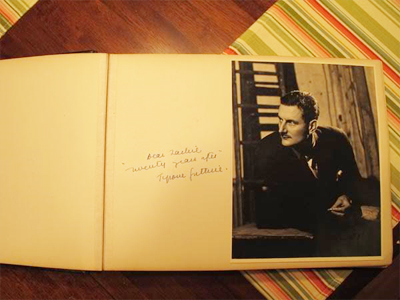 Dear
"Twenty years after"
Tyrone Guthrie.